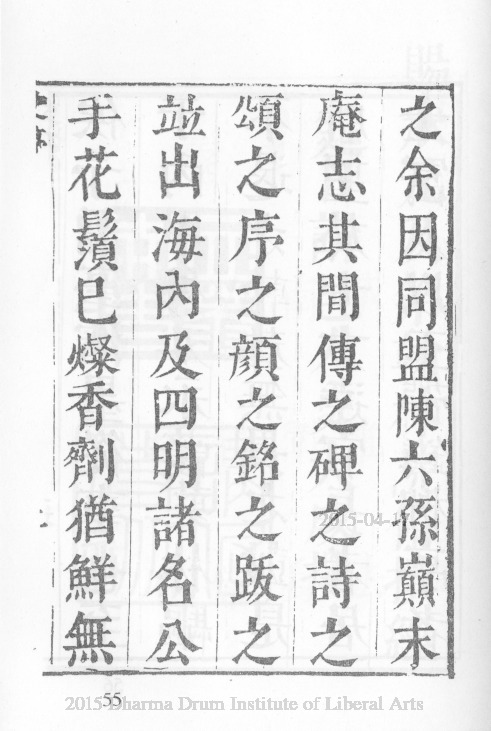 之余因同盟陳六孫巔末
庵志其間傳之碑之詩之
頌之序之顏之銘之跋之
並出海內及四明諸名公
手花鬚已燦香劑猶鮮無
2015-04-17
55
2015 Dharma Drum Institute of Liberal Arts